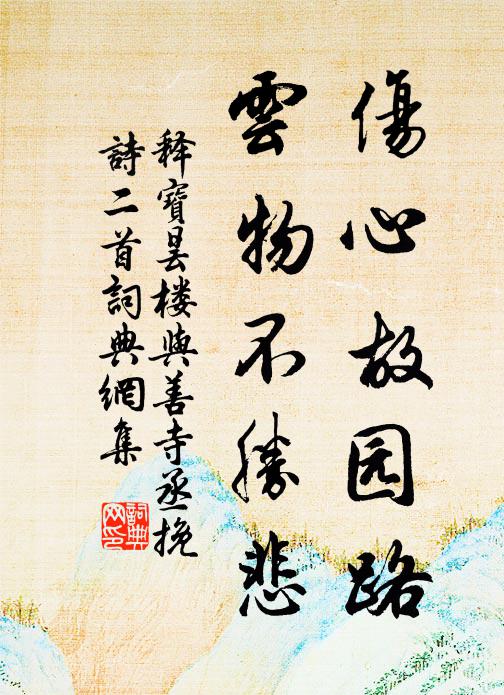 傷心故园路
雲物不勝悲
释寶昙楼與善寺丞挽
詩二首詞典網集
詞典
网印